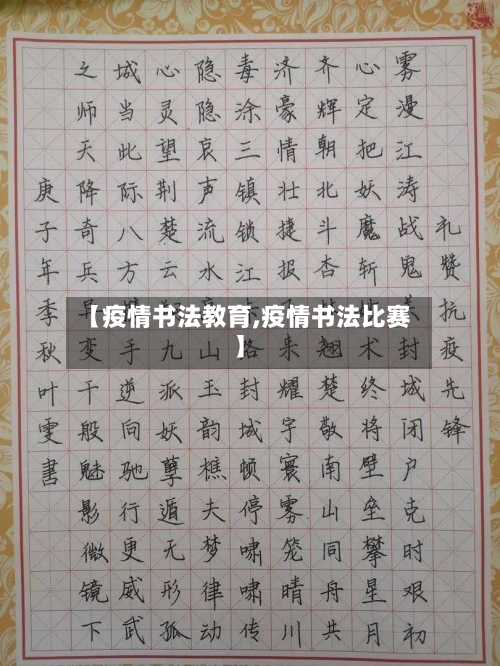 礼赞抗疫先锋
雾漫江涛战鬼封城闭户克时艰初
心定把妖魔斩术终将壁垒攀星月
齐辉朝北斗杏翘楚敬南山同舟共
济豪情壮捷报来耀宇寰雾笼晴川
毒涂三镇锁江路封城顿停啸啸传
隐隐哀声流水山玉韵樵夫梦律动
心灵望荆楚云九派妖孽遁无形孤
城当此际八方手逆向驰行更威武
之师天降奇兵早变干般魅影微镜下
庚子年季秋叶雯書
【疫情书法教育,疫情书法比赛
】